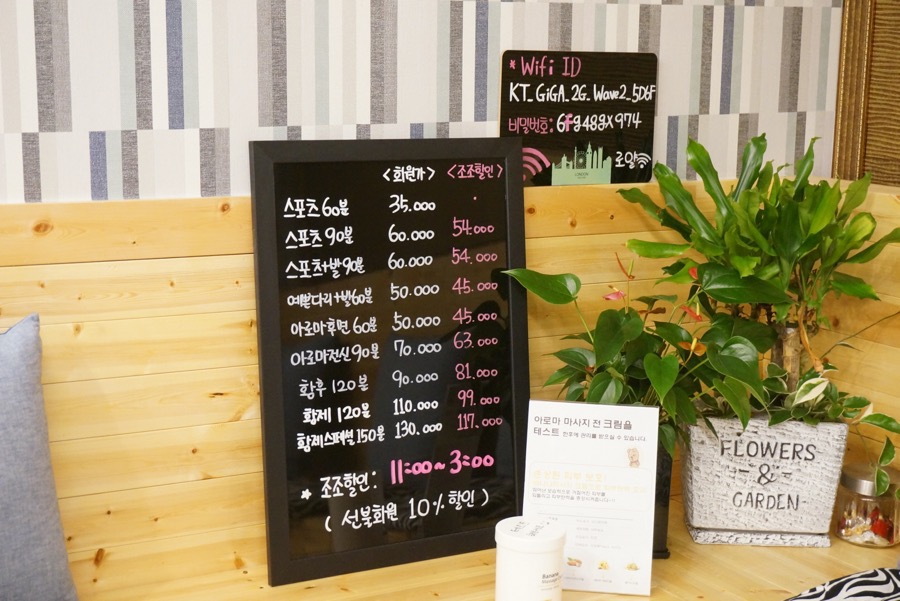 * Wifi ID
KT_GiGA_2G_Wave2_5D6F
비밀번호: 6fg48gx974
로얄
LONDON
<회원가> <조조할인>
스포츠 60분 35.000
스포츠 90분 60.000 54.000
스포츠+발 90분 60.000 54.000
예쁜다리+발60분 50.000 45.000
아로마후면 60분 50.000 45.000
아로마전신 90분 70.000 63.000
황후 120분 90.000 81.000
황제 120분 110.000 99.000
황제스페셜 150분 130.000 117.000
* 조조할인: 11:00~3:00
( 선불회원 10% 할인 )
아로마 마사지 전 크림을
테스트 전후에 관리를 받으실 수 있습니다.
FLOWERS
&
GARDEN
Banana